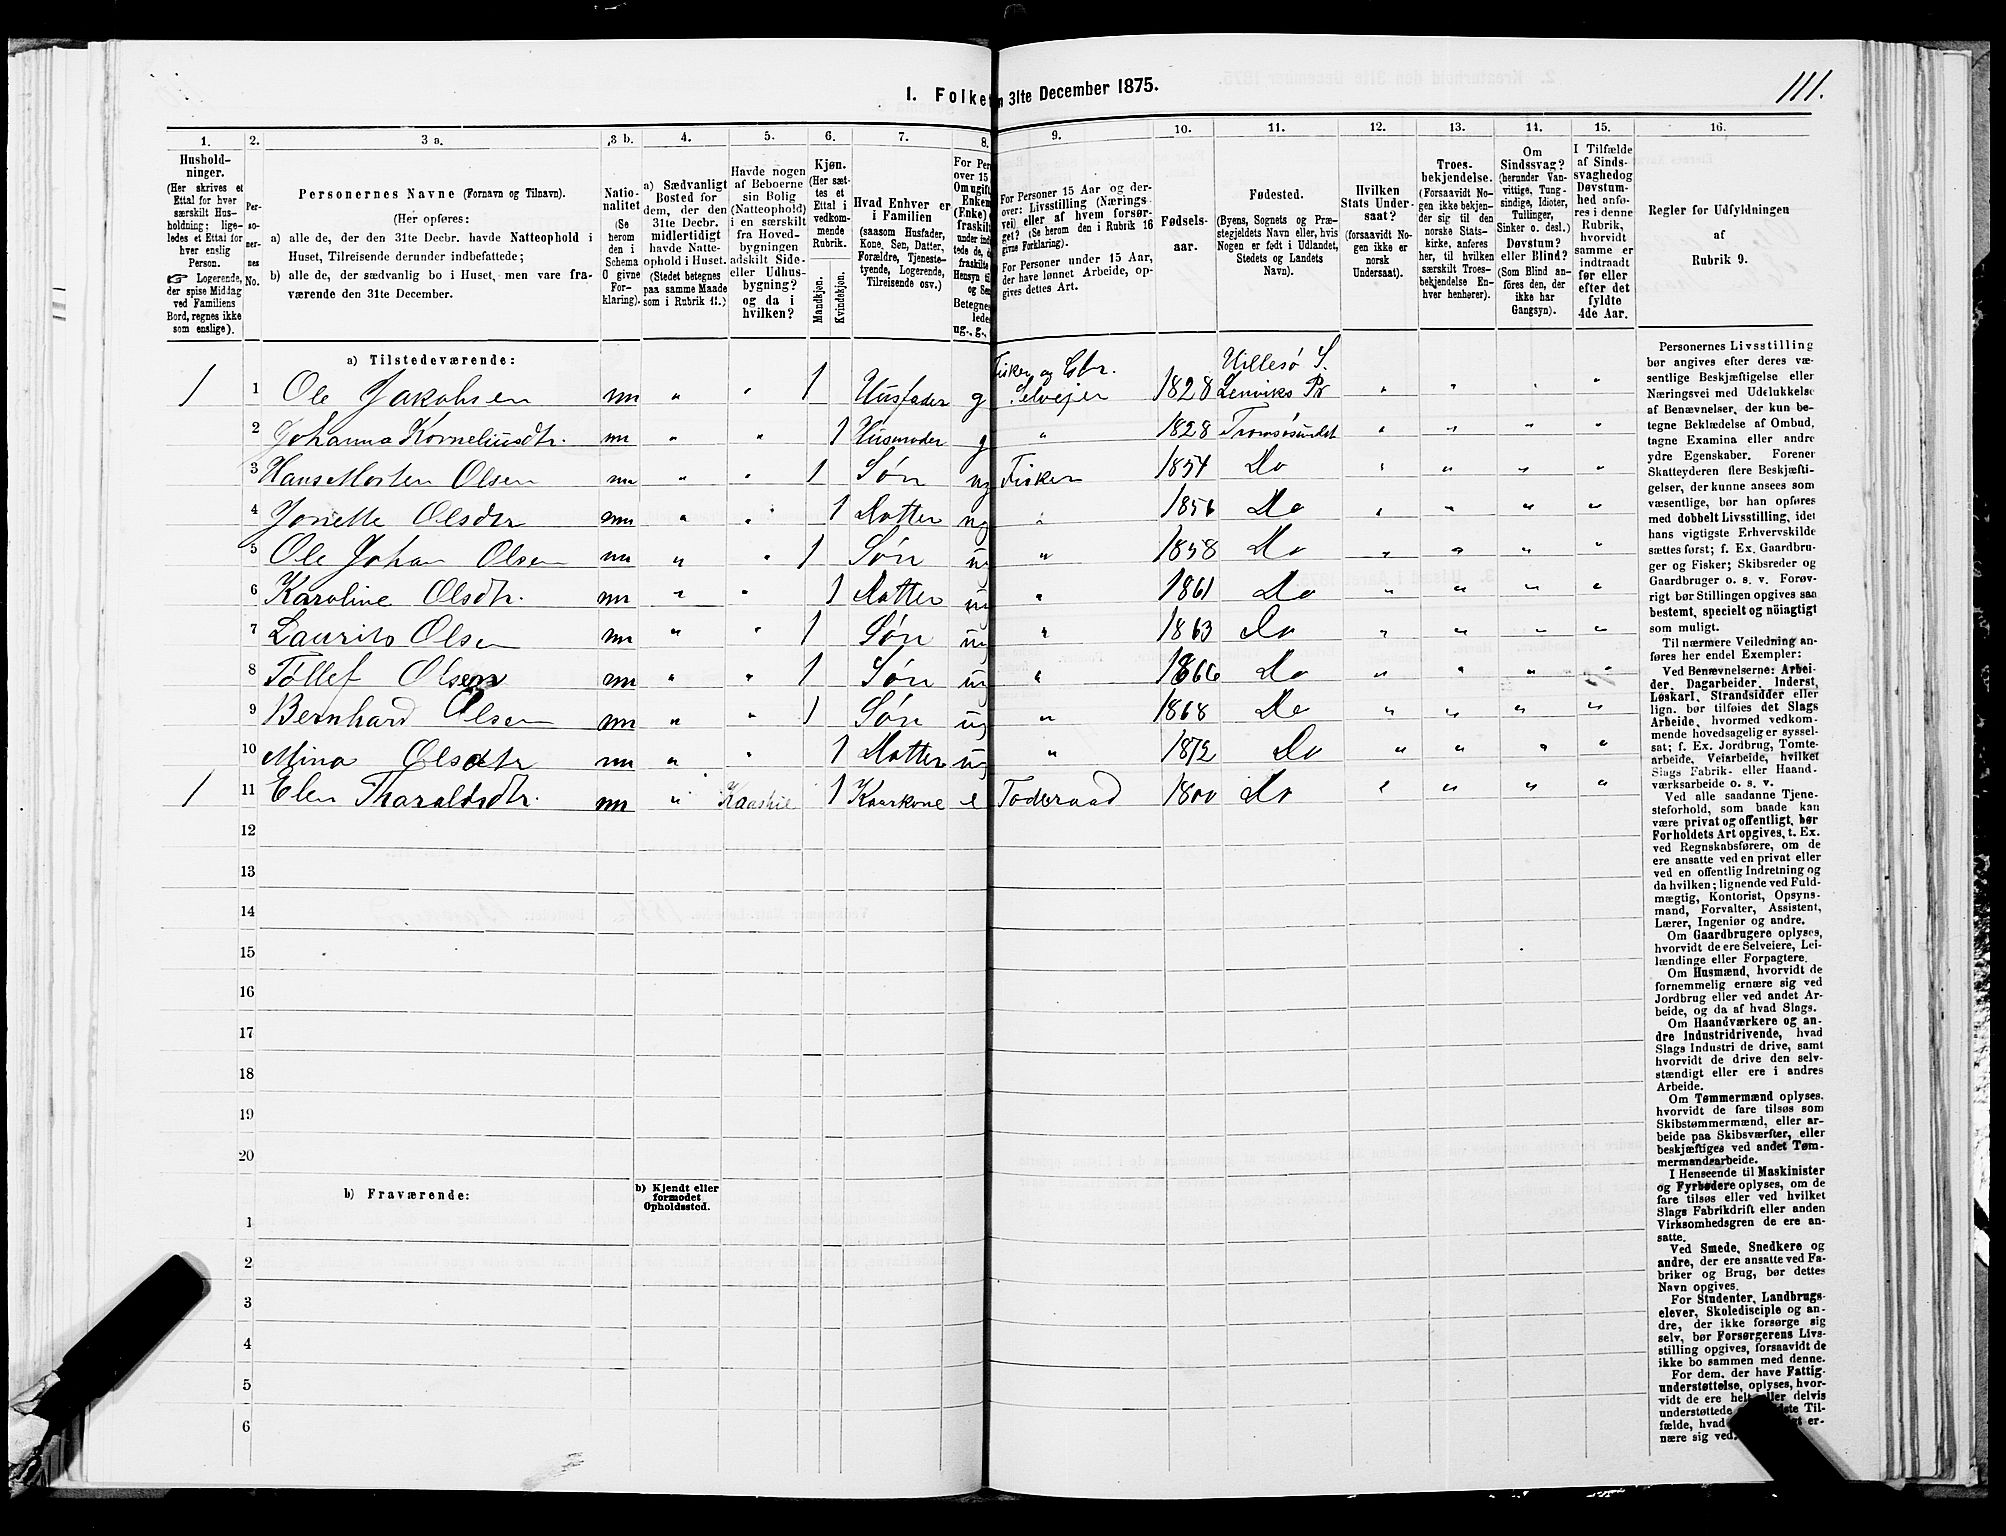 111.
I. Folke n 31te December 1875.
1. 2. 3 a. 3 b. 4. 5. 6. 7. 8. 9. 10. 11. 12. 13. 14. 15. 16.
Hushold-
ninger.
(Her skrives et
Ettal for hver
særskilt Hus-
holdning; lige-
ledes et Ettal for
hver enslig
Person.
☞ Logerende,
der spise Middag
ved Familiens
Bord, regnes ikke
som enslige).
Per-
so-
ner-
nes
No.
Personernes Navne (Fornavn og Tilnavn).
(Her opføres:
a) alle de, der den 31te Decbr. havde Natteophold i
Huset, Tilreisende derunder indbefattede;
b) alle de, der sædvanlig bo i Huset, men vare fra-
værende den 31te December.
Natio-
nalitet
(Se
herom
den i
Schema
O givne
For-
klaring).
a) Sædvanligt
Bosted for
dem, der den
31te Decbr.
midlertidigt
havde Natte-
ophold i Huset.
(Stedet betegnes
paa samme Maade
som i Rubrik 11.)
Havde nogen
af Beboerne
sin Bolig
(Natteophold)
i en særskilt
fra Hoved-
bygningen
adskilt Side-
eller Udhus-
bygning?
og da i
hvilken?
Kjøn.
(Her sæt-
tes et
Ettal i
vedkom-
mende
Rubrik.
Mandkjøn.
Kvindekjøn.
Hvad Enhver er
i Familien
(saasom Husfader,
Kone, Søn, Datter,
Forældre, Tjeneste-
tyende, Logerende,
Tilreisende osv.)
For Per
over 15
Om ugift
Enkem
(Enke)
fraskilt
under ind
tede de,
fraskilte
Hensyn ti
og Sæ
Betegnes
lede
ug., g.,
For Personer 15 Aar og der-
over: Livsstilling (Nærings-
vei) eller af hvem forsør-
get? (Se herom den i Rubrik 16
givne Forklaring).
For Personer under 15 Aar,
der have lønnet Arbeide, op-
gives dettes Art.
Fødsels-
aar.
Fødested.
(Byens, Sognets og Præ-
stegjeldets Navn eller, hvis
Nogen er født i Udlandet,
Stedets og Landets
Navn).
Hvilken
Stats Under-
saat?
(forsaavidt No-
gen ikke er
norsk
Undersaat).
Troes-
bekjendelse.
(Forsaavidt No-
gen ikke bekjen-
der sig til den
norske Stats-
kirke, anføres
her, til hvilken
særskilt Troes-
bekjendelse En-
hver henhører).
Om
Sindssvag?
(herunder Van-
vittige, Tung-
sindige, Idioter,
Tullinger,
Sinker o. desl.)
Døvstum?
eller Blind?
(Som Blind an-
føres den, der
ikke har
Gangsyn).
I Tilfælde
af Sinds-
svaghed og
Døvstum-
hed anfø-
res i denne
Rubrik,
hvorvidt
samme er
indtraadt
før eller
efter det
fyldte
4de Aar.
Regler for Udfyldningen
af
Rubrik 9.
a) Tilstedeværende:
1 1 Ole Jakobsen nn „ „ 1 Husfader g Fisker og Gbr. Selvejer 1828 Hillesø S. Lenviks Pr „ „ „ „
2 Johanna Korneliusdtr. nn „ „ 1 Husmoder g „ 1828 Tromsøsundet „ „ „ „
3 Hans Morten Olsen nn „ „ 1 Søn ug Fisker 1854 Do „ „ „ „
4 Jonette Olsdtr nn „ „ 1 Datter ug „ 1856 Do „ „ „ „
5 Ole Johan Olsen nn „ „ 1 Søn ug „ 1858 Do „ „ „ „
6 Karoline Olsdtr. nn „ „ 1 Datter ug „ 1861 Do „ „ „ „
7 Laurits Olsen nn „ „ 1 Søn ug „ 1863 Do „ „ „ „
8 Tollef Olsen nn „ „ 1 Søn ug „ 1866 Do „ „ „ „
9 Bernhard Olsen nn „ „ 1 Søn ug „ 1868 Do „ „ „ „
10 Mina Olsdtr nn „ „ 1 Datter ug „ 1872 Do „ „ „ „
1 11 Elen Tharaldsdtr. nn „ 1 Kaarkone e Foderaad 1800 Do „ „ „ „
12
13
14
15
16
17
18
19
20
b) Fraværende:
b) Kjendt eller
formodet
Opholdssted.
1
2
3
4
5
6
Personernes Livsstilling
bør angives efter deres væ-
sentlige Beskjæftigelse eller
Næringsvei med Udelukkelse
af Benævnelser, der kun be-
tegne Beklædelse af Ombud,
tagne Examina eller andre
ydre Egenskaber. Forener
Skatteyderen flere Beskjæfti-
gelser, der kunne ansees som
væsentlige, bør han opføres
med dobbelt Livsstilling, idet
hans vigtigste Erhvervskilde
sættes først; f. Ex. Gaardbru-
ger og Fisker; Skibsreder og
Gaardbruger o. s. v. Forøv-
rigt bør Stillingen opgives saa
bestemt, specielt og nöiagtigt
som muligt.
Til nærmere Veiledning an-
føres her endel Exempler:
Ved Benævnelserne: Arbei-
der, Dagarbeider, Inderst,
Løskarl, Strandsidder eller
lign. bør tilføies det Slags
Arbeide, hvormed vedkom-
mende hovedsagelig er syssel-
sat; f. Ex. Jordbrug, Tomte-
arbeide, Veiarbeide, hvilket
Slags Fabrik- eller Haand-
værksarbeide o. s. v.
Ved alle saadanne Tjene-
steforhold, som baade kan
være privat og offentligt, bør
Forholdets Art opgives, t. Ex.
ved Regnskabsførere, om de
ere ansatte ved en privat eller
ved en offentlig Indretning og
da hvilken; lignende ved Fuld-
mægtig, Kontorist, Opsyns-
mand, Forvalter, Assistent,
Lærer, Ingeniør og andre.
Om Gaardbrugere oplyses,
hvorvidt de ere Selveiere, Lei-
lændinge eller Forpagtere.
Om Husmænd, hvorvidt de
fornemmelig ernære sig ved
Jordbrug eller ved andet Ar-
beide, og da af hvad Slags.
Om Haandværkere og an-
dre Industridrivende, hvad
Slags Industri de drive, samt
hvorvidt de drive den selv-
stændigt eller ere i andres
Arbeide.
Om Tømmermænd oplyses,
hvorvidt de fare tilsøs som
Skibstømmermænd, eller ar-
beide paa Skibsværfter, eller
beskjæftiges ved andet Tøm-
mermandsarbeide.
I Henseende til Maskinister
og Fyrbødere oplyses, om de
fare tilsøs eller ved hvilket
Slags Fabrikdrift eller anden
Virksomhedsgren de ere an-
satte.
Ved Smede, Snedkere og
andre, der ere ansatte ved Fa-
briker og Brug, bør dettes
Navn opgives.
For Studenter, Landbrugs-
elever, Skoledisciple og an-
dre, der ikke forsørge sig
selv, bør Forsørgerens Livs-
stilling opgives, forsaavidt de
ikke bo sammen med denne.
For dem, der have Fattig-
understøttelse, oplyses, hvor-
vidt de ere helt eller delvis
understøttede Til-
fælde, hvad er-
nære sig ved.